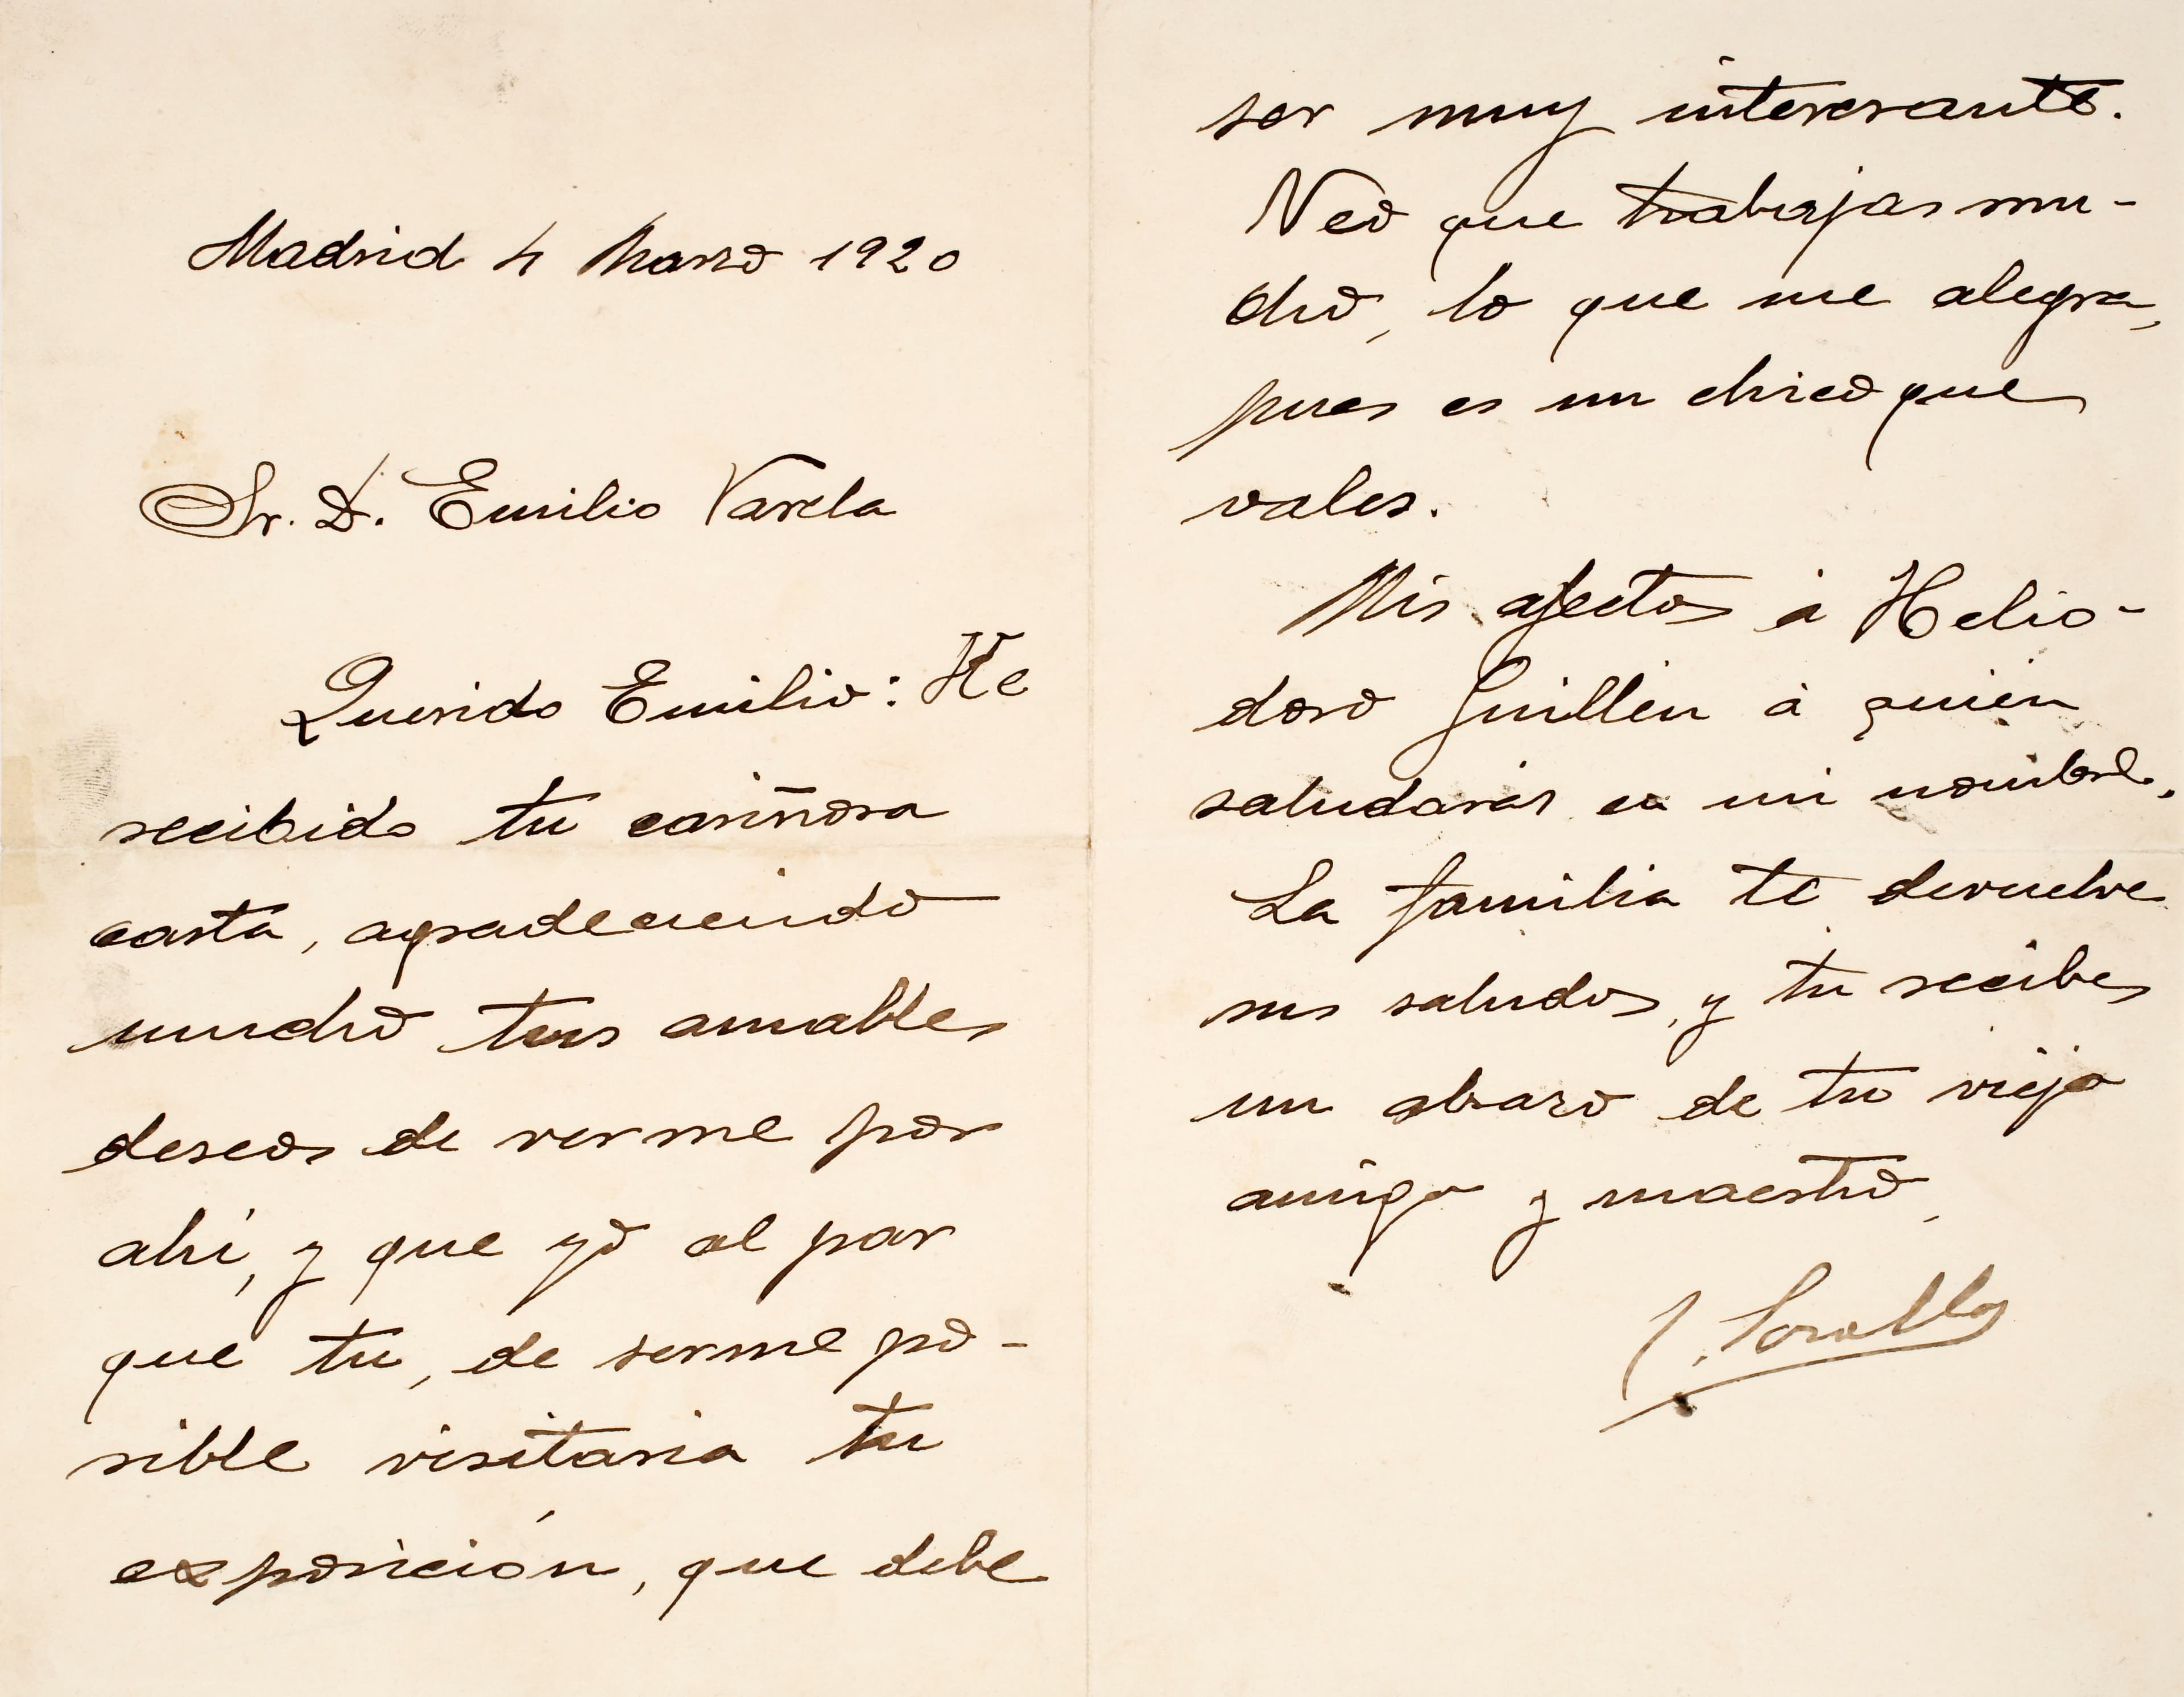 Madrid 4 Marzo 1920
Sr. D. Emilio Varela
Querido Emilio: He
recibido tu cariñosa
carta, agradeciendo
mucho tus amables
deseos de verme por
ahí, y que yo al par
que tu, de serme po-
sible visitaria tu
exposición, que debe
ser muy interesante.
Veo que trabajas mu-
cho, lo que me alegra,
pues es un chico que
vales.
Mis afectos á Helio-
doro Guillén á quién
saludarás en mi nombre.
La familia te devuelve
sus saludos, y tu recibes
un abrazo de tu viejo
amigo y maestro,
J. Sorolla